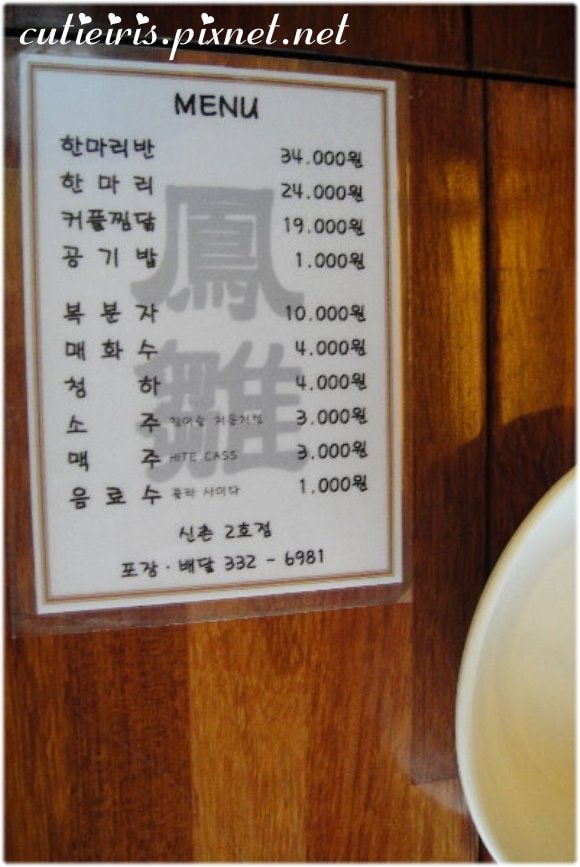 cutieiris.pixnet.net
MENU
한마리반 34.000원
한 마 리 24.000원
커플찜닭 19.000원
공 기 밥 1.000원
복 분 자 10.000원
매 화 수 4.000원
청 하 4.000원
소 주 참이슬 처음처럼 3.000원
맥 주 HITE CASS 3.000원
음 료 수 콜라 사이다 1.000원
신촌 2호점
포장·배달 332 - 6981
鳳
雛